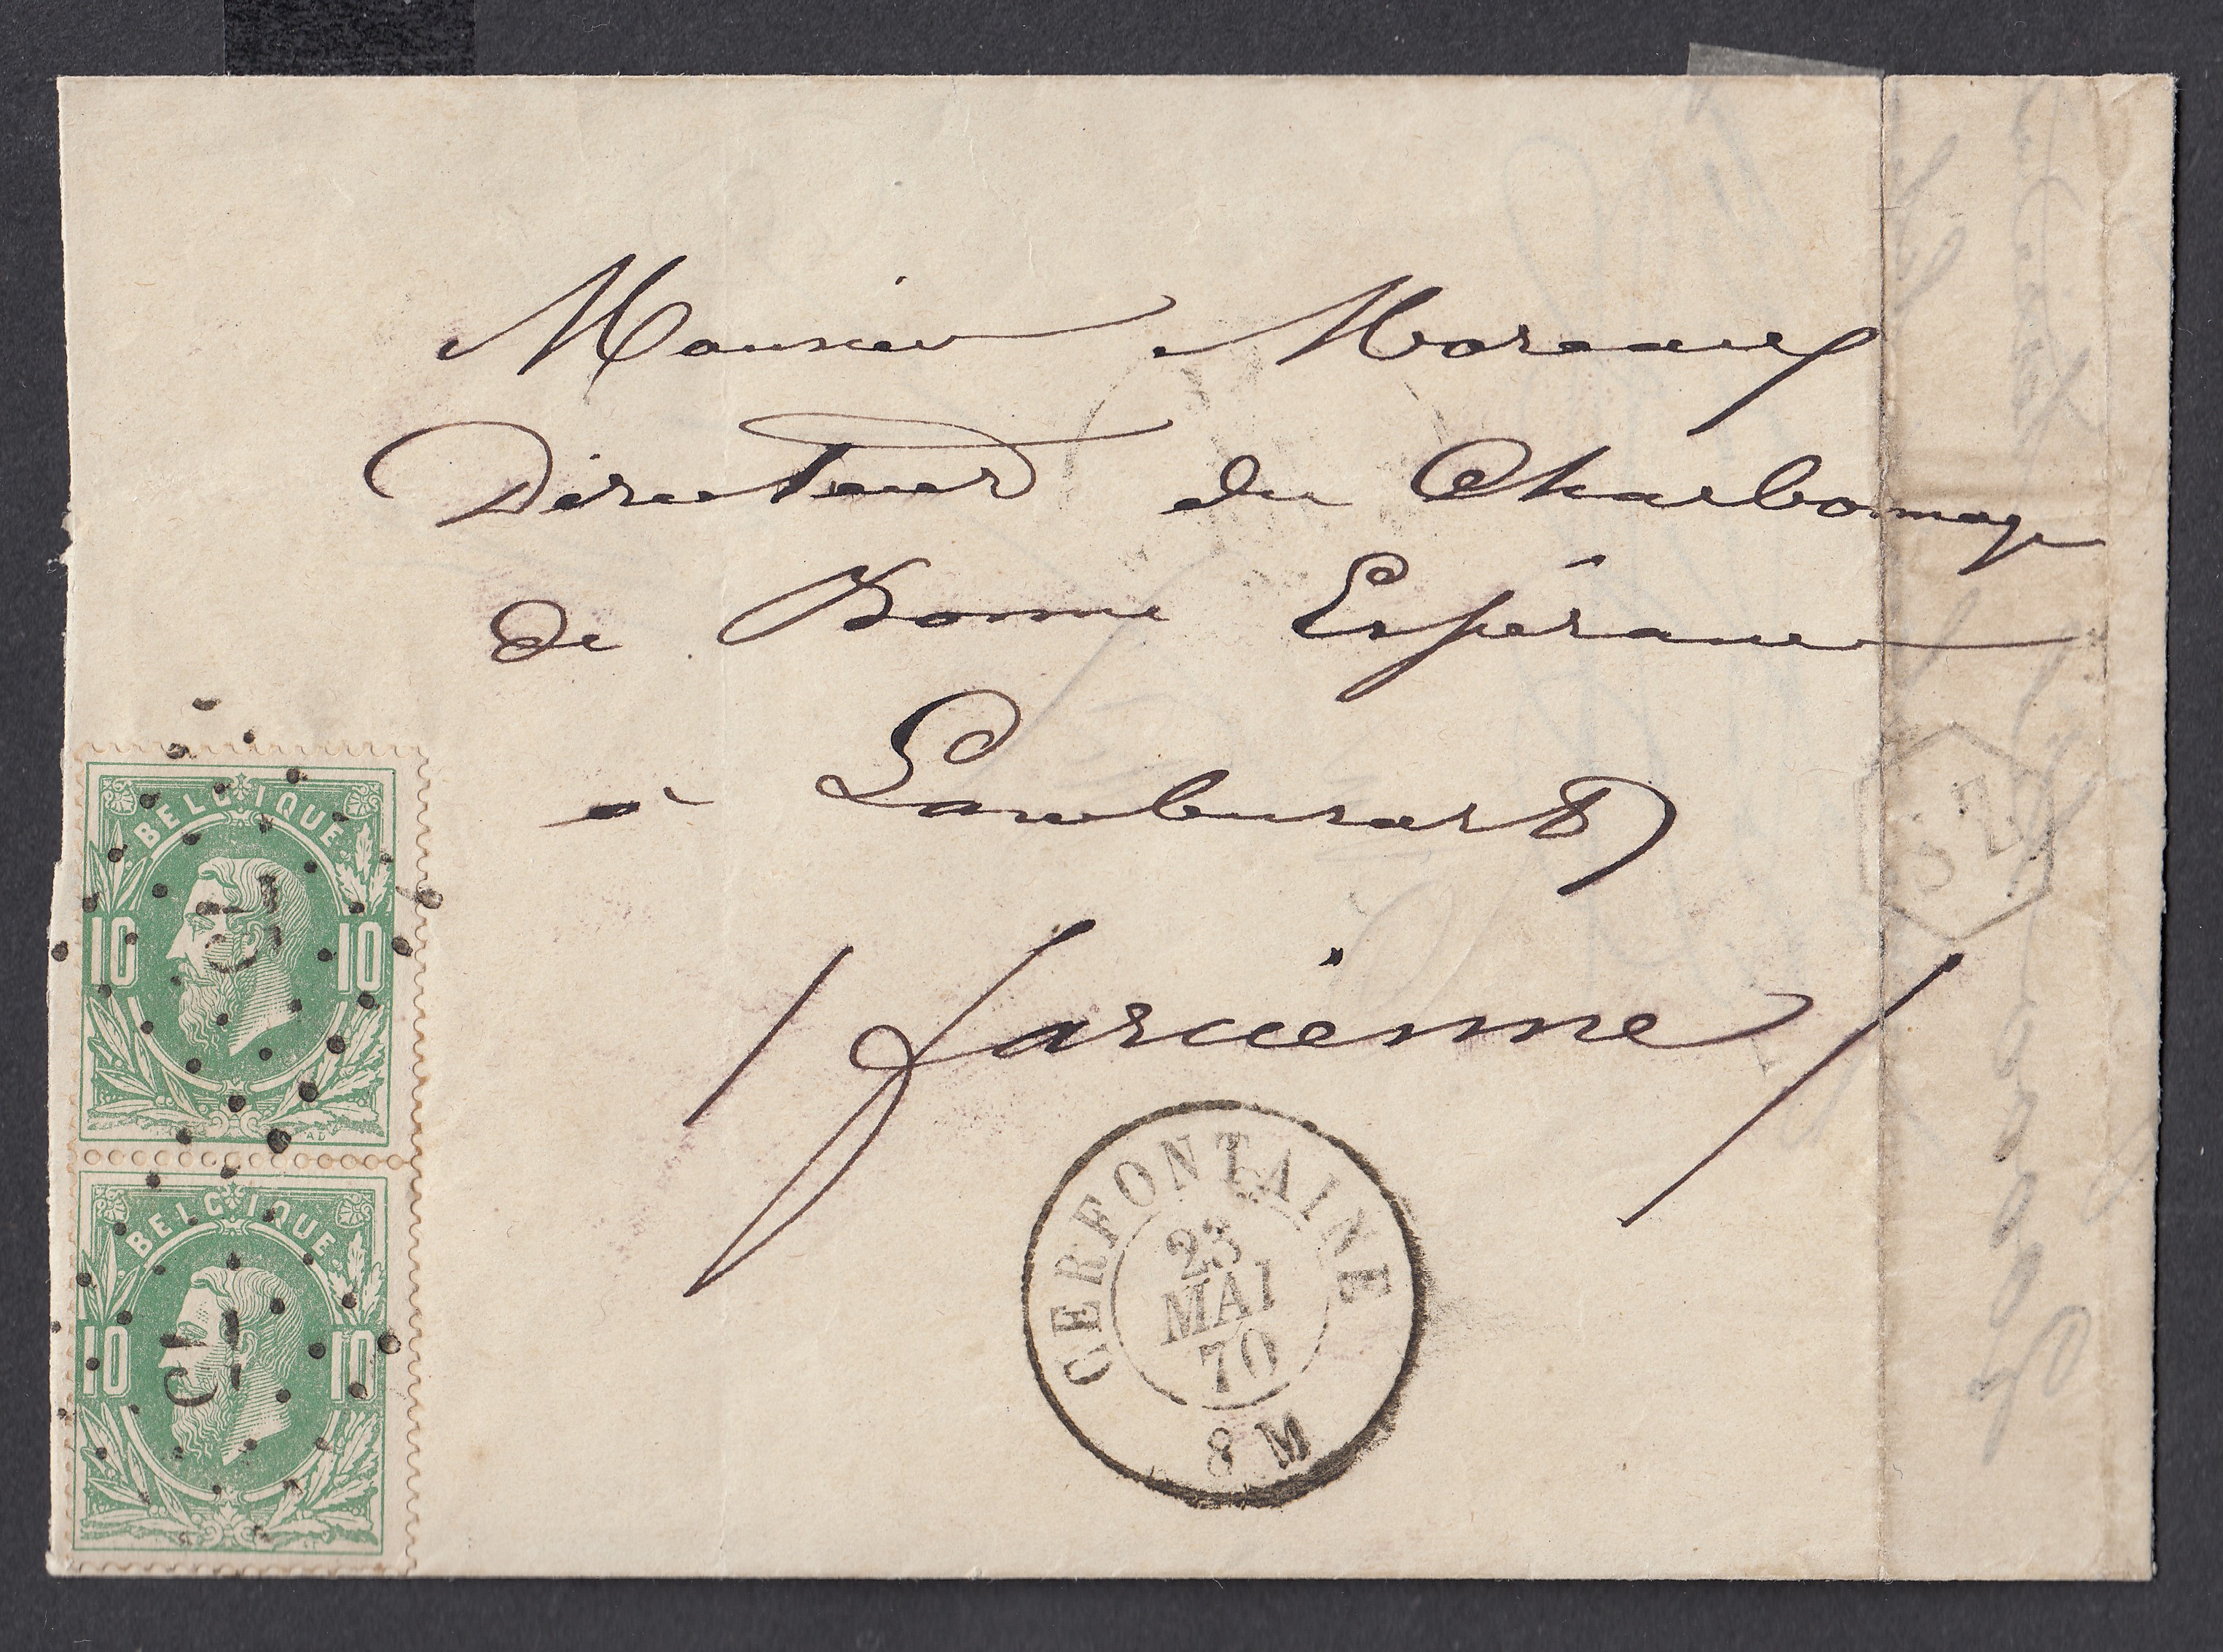 Monsieur Moreaux
Directeur du Charbonnage
de Bonne Espérance
à Lambusart
/ farcienne /
BELGIQUE
10 10
BELGIQUE
10 10
CERFONTAINE
23
MAI
70
8 M